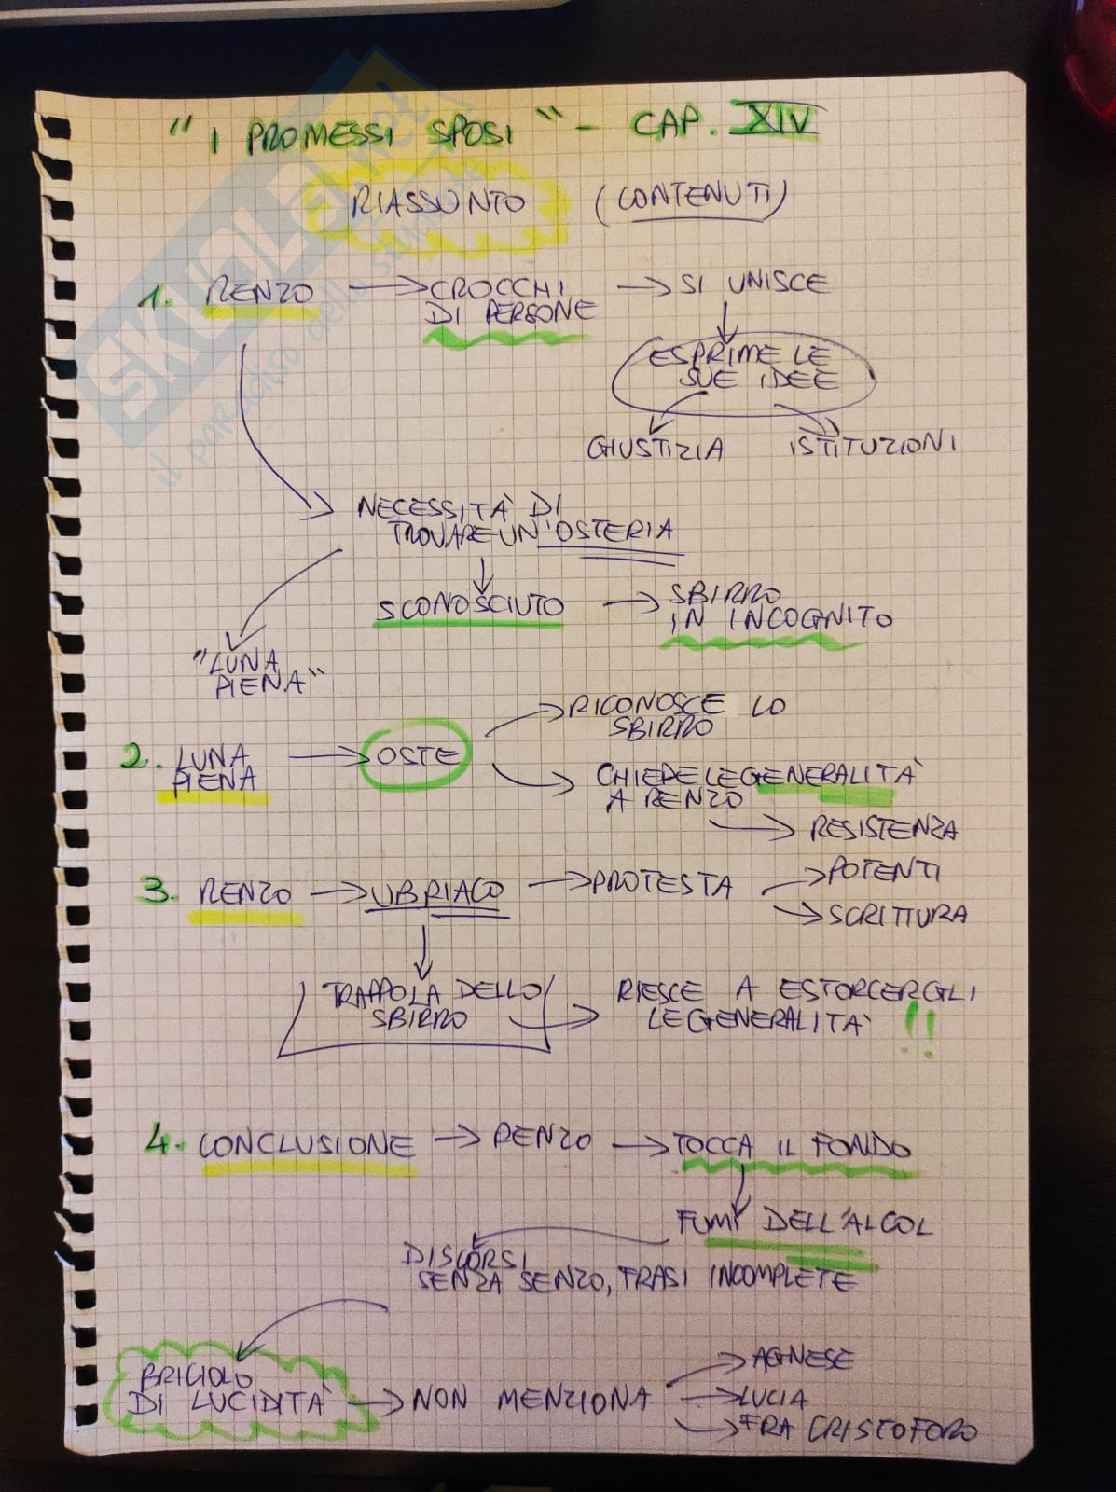 "I PROMESSI SPOSI" - CAP. XIV
RIASSUNTO (CONTENUTI)
1. RENZO → CROCCHI → SI UNISCE
DI PERSONE
ESPRIME LE
SUE IDEE
GIUSTIZIA ISTITUZIONI
NECESSITÀ DI
TROVARE UN'OSTERIA
SCONOSCIUTO → SBIRRO
IN INCOGNITO
"LUNA
PIENA"
RICONOSCE LO
SBIRRO
2. LUNA → OSTE
PIENA
CHIEDE LE GENERALITÀ
A RENZO
→ RESISTENZA
3. RENZO → UBRIACO → PROTESTA → POTENTI
→ SCRITTURA
TRAPPOLA DELLO
SBIRRO
→ RIESCE A ESTORCERGLI
LE GENERALITÀ !!
4. CONCLUSIONE → RENZO → TOCCA IL FONDO
FUMI DELL'ALCOL
DISCORSI
SENZA SENZO, FRASI INCOMPLETE
BRICIOLO
DI LUCIDITÀ → NON MENZIONA → AGNESE
→ LUCIA
→ FRA CRISTOFORO
SKUOLA.net